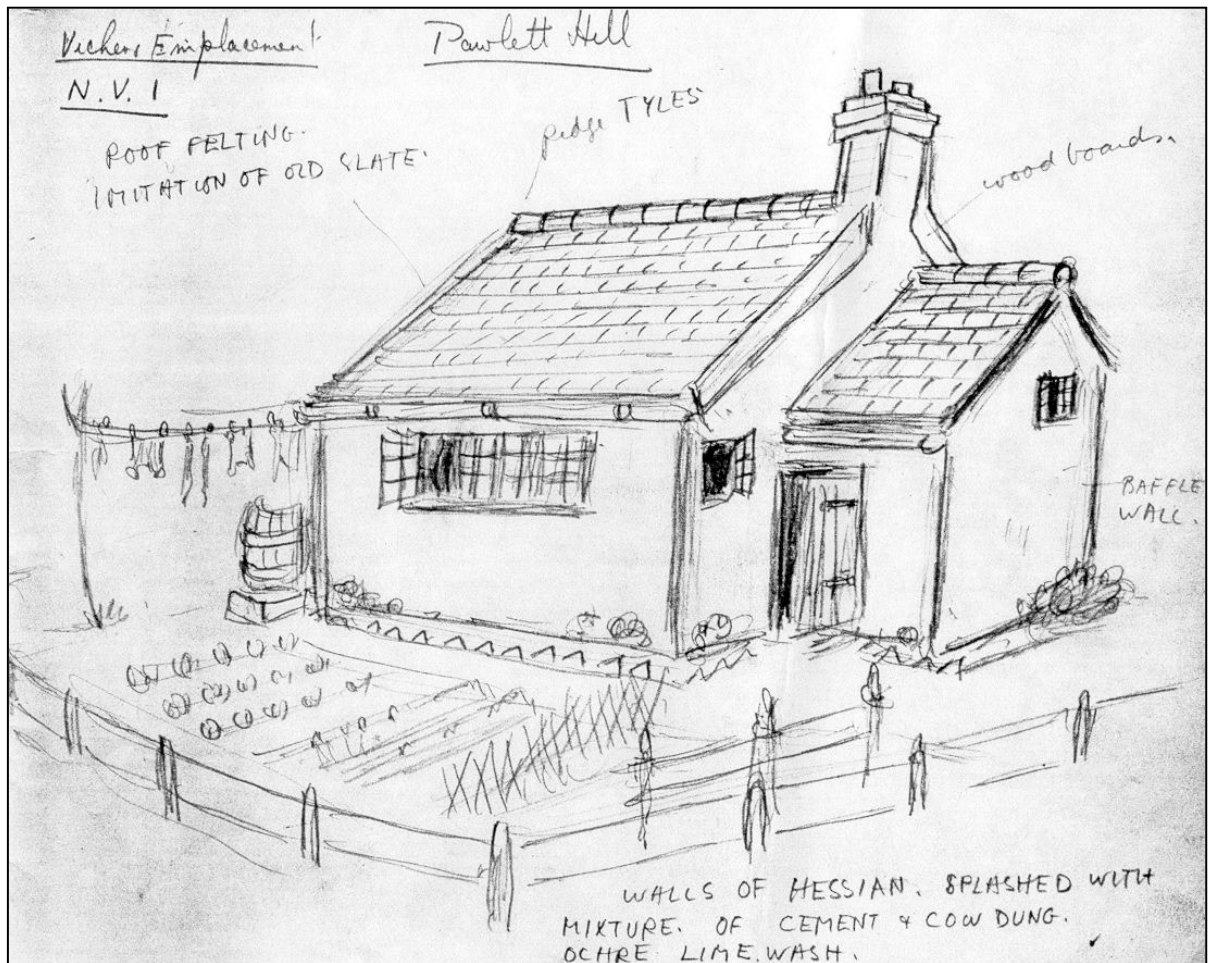 Vickers Emplacement
N.V. 1
Pawlett Hill
ROOF FELTING.
IMITATION OF OLD SLATE.
Ridge TYLES
wood boards.
BAFFLE
WALL.
WALLS OF HESSIAN. SPLASHED WITH
MIXTURE. OF CEMENT & COW DUNG.
OCHRE LIME.WASH.